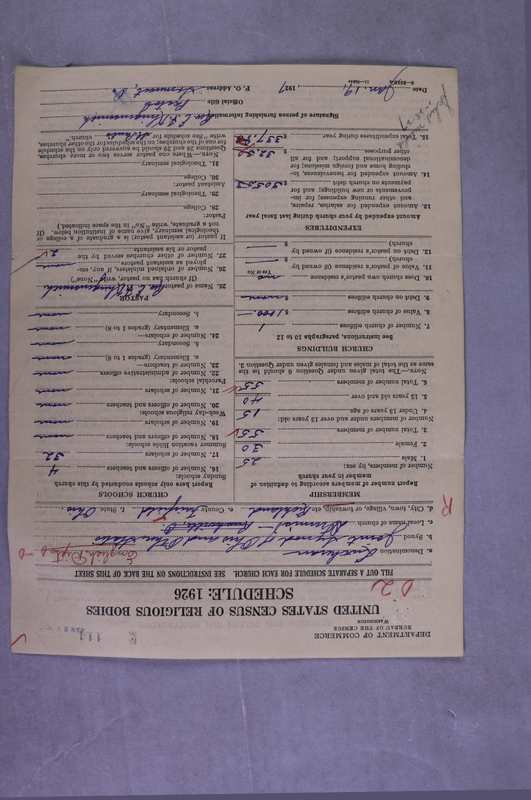 DEPARTMENT OF COMMERCE
BUREAU OF THE CENSUS
WASHINGTON
UNITED STATES CENSUS OF RELIGIOUS BODIES
SCHEDULE: 1926
FILL OUT A SEPARATE SCHEDULE FOR EACH CHURCH. SEE INSTRUCTIONS ON THE BACK OF THIS SHEET
a. Denomination Lutheran
b. Synod Joint Synod of Ohio and Other States
c. Local name of church
d. City, town, village, or township, etc. Richland e. County Fairfield f. State Ohio
MEMBERSHIP
Report number of members according to definition of member in your church
Number of members, by sex:
1. Male 25
2. Female 30
3. Total number of members. 55
Number of members under and over 13 years old:
4. Under 13 years of age 15
5. 13 years old and over 40
6. Total number of members 55
NOTE.—The total given under Question 6 should be the same as the total of males and females given under Question 3.
CHURCH BUILDINGS
See Instructions, paragraphs 10 to 12
7. Number of church edifices 1
8. Value of church edifices $
9. Debt on church edifices $ none
10. Does church own pastor's residence no
Yes or No
11. Value of pastor's residence (if owned by church) $
12. Debt on pastor's residence (if owned by church) $
EXPENDITURES
Amount expended by your church during last fiscal year
13. Amount expended for salaries, repairs, and other running expenses; for improvements or new buildings; and for payments on church debt
14. Amount expended for benevolences, including home and foreign missions; for denominational support; and for all other purposes
15. Total expenditures during year
CHURCH SCHOOLS
Report here only schools conducted by this church
Sunday schools:
16. Number of officers and teachers 4
17. Number of scholars 32
Summer vacation Bible schools:
18. Number of officers and teachers none
19. Number of scholars
Week-day religious schools:
20. Number of officers and teachers none
21. Number of scholars none
Parochial schools:
22. Number of administrative officers none
23. Number of teachers—
a. Elementary (grades 1 to 8) none
b. Secondary none
24. Number of scholars—
a. Elementary (grades 1 to 8) none
b. Secondary none
PASTOR
25. Name of pastor
(If church has no pastor, write "None")
26. Number of ordained ministers, if any, employed as assistant pastors none
27. Number of other churches served by the pastor or his assistants 2
If pastor (or assistant pastor) is a graduate of a college or theological seminary, give name of institution below. (If not a graduate, write "No" in the space indicated.)
Pastor:
28. College
29. Theological seminary
Assistant pastor:
30. College
31. Theological seminary
Signature of person furnishing information
Official title Pastor
Date Jan 19, 1927 P. O. Address